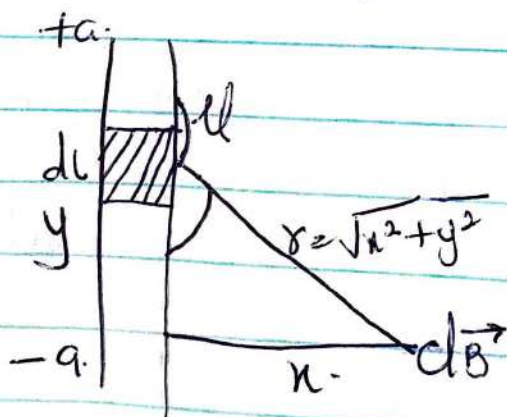 +a.
dl
y
r = √x² + y²
-a.
x.
dB→